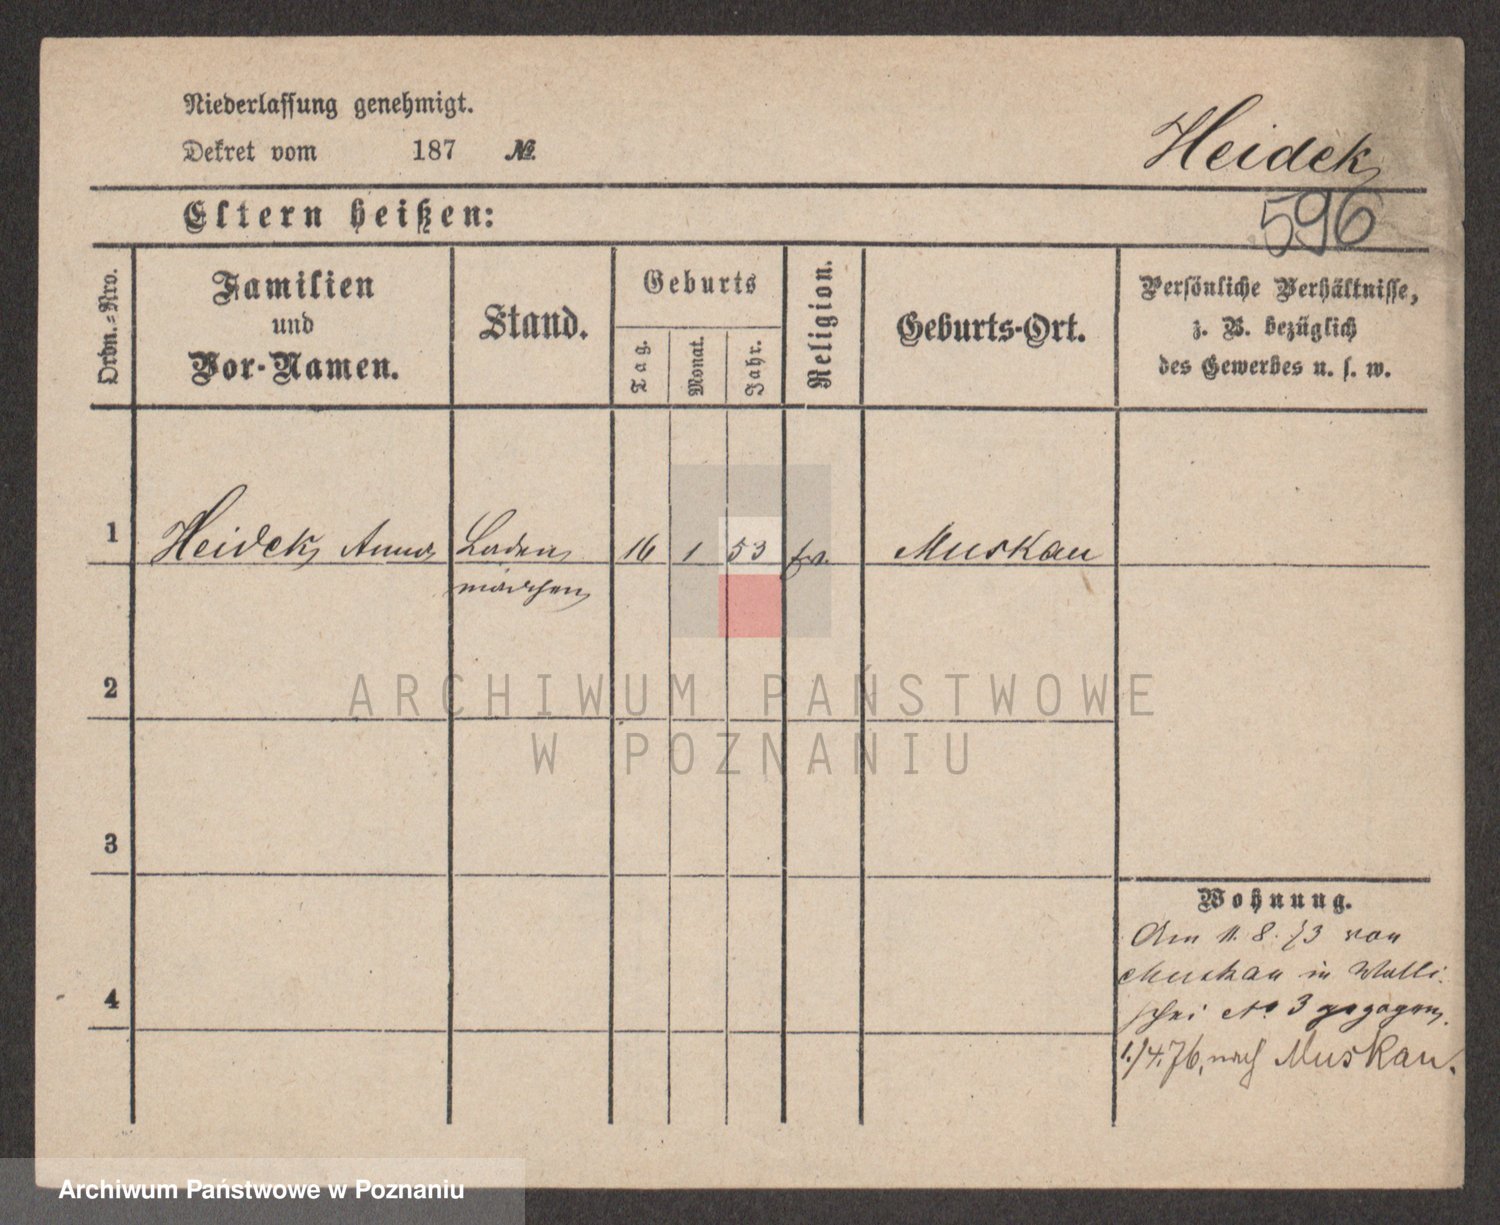 Niederlassung genehmigt.
Dekret vom 187 №.
Heidek
Eltern heißen:
596
Ordn.-Nro.
Familien
und
Vor-Namen.
Stand.
Geburts
Tag.
Monat.
Jahr.
Religion.
Geburts-Ort.
Persönliche Verhältnisse,
z. B. bezüglich
des Gewerbes u. s. w.
1 Heidek Anna Laden 16 1 53 Muskau
mädchen
2
ARCHIWUM PAŃSTWOWE
W POZNANIU
3
Wohnung.
Am 11. 8. 73 von
Muskau in Walli
schei No 3 gezogen.
4
1./4.76, nach Muskau.
Archiwum Państwowe w Poznaniu